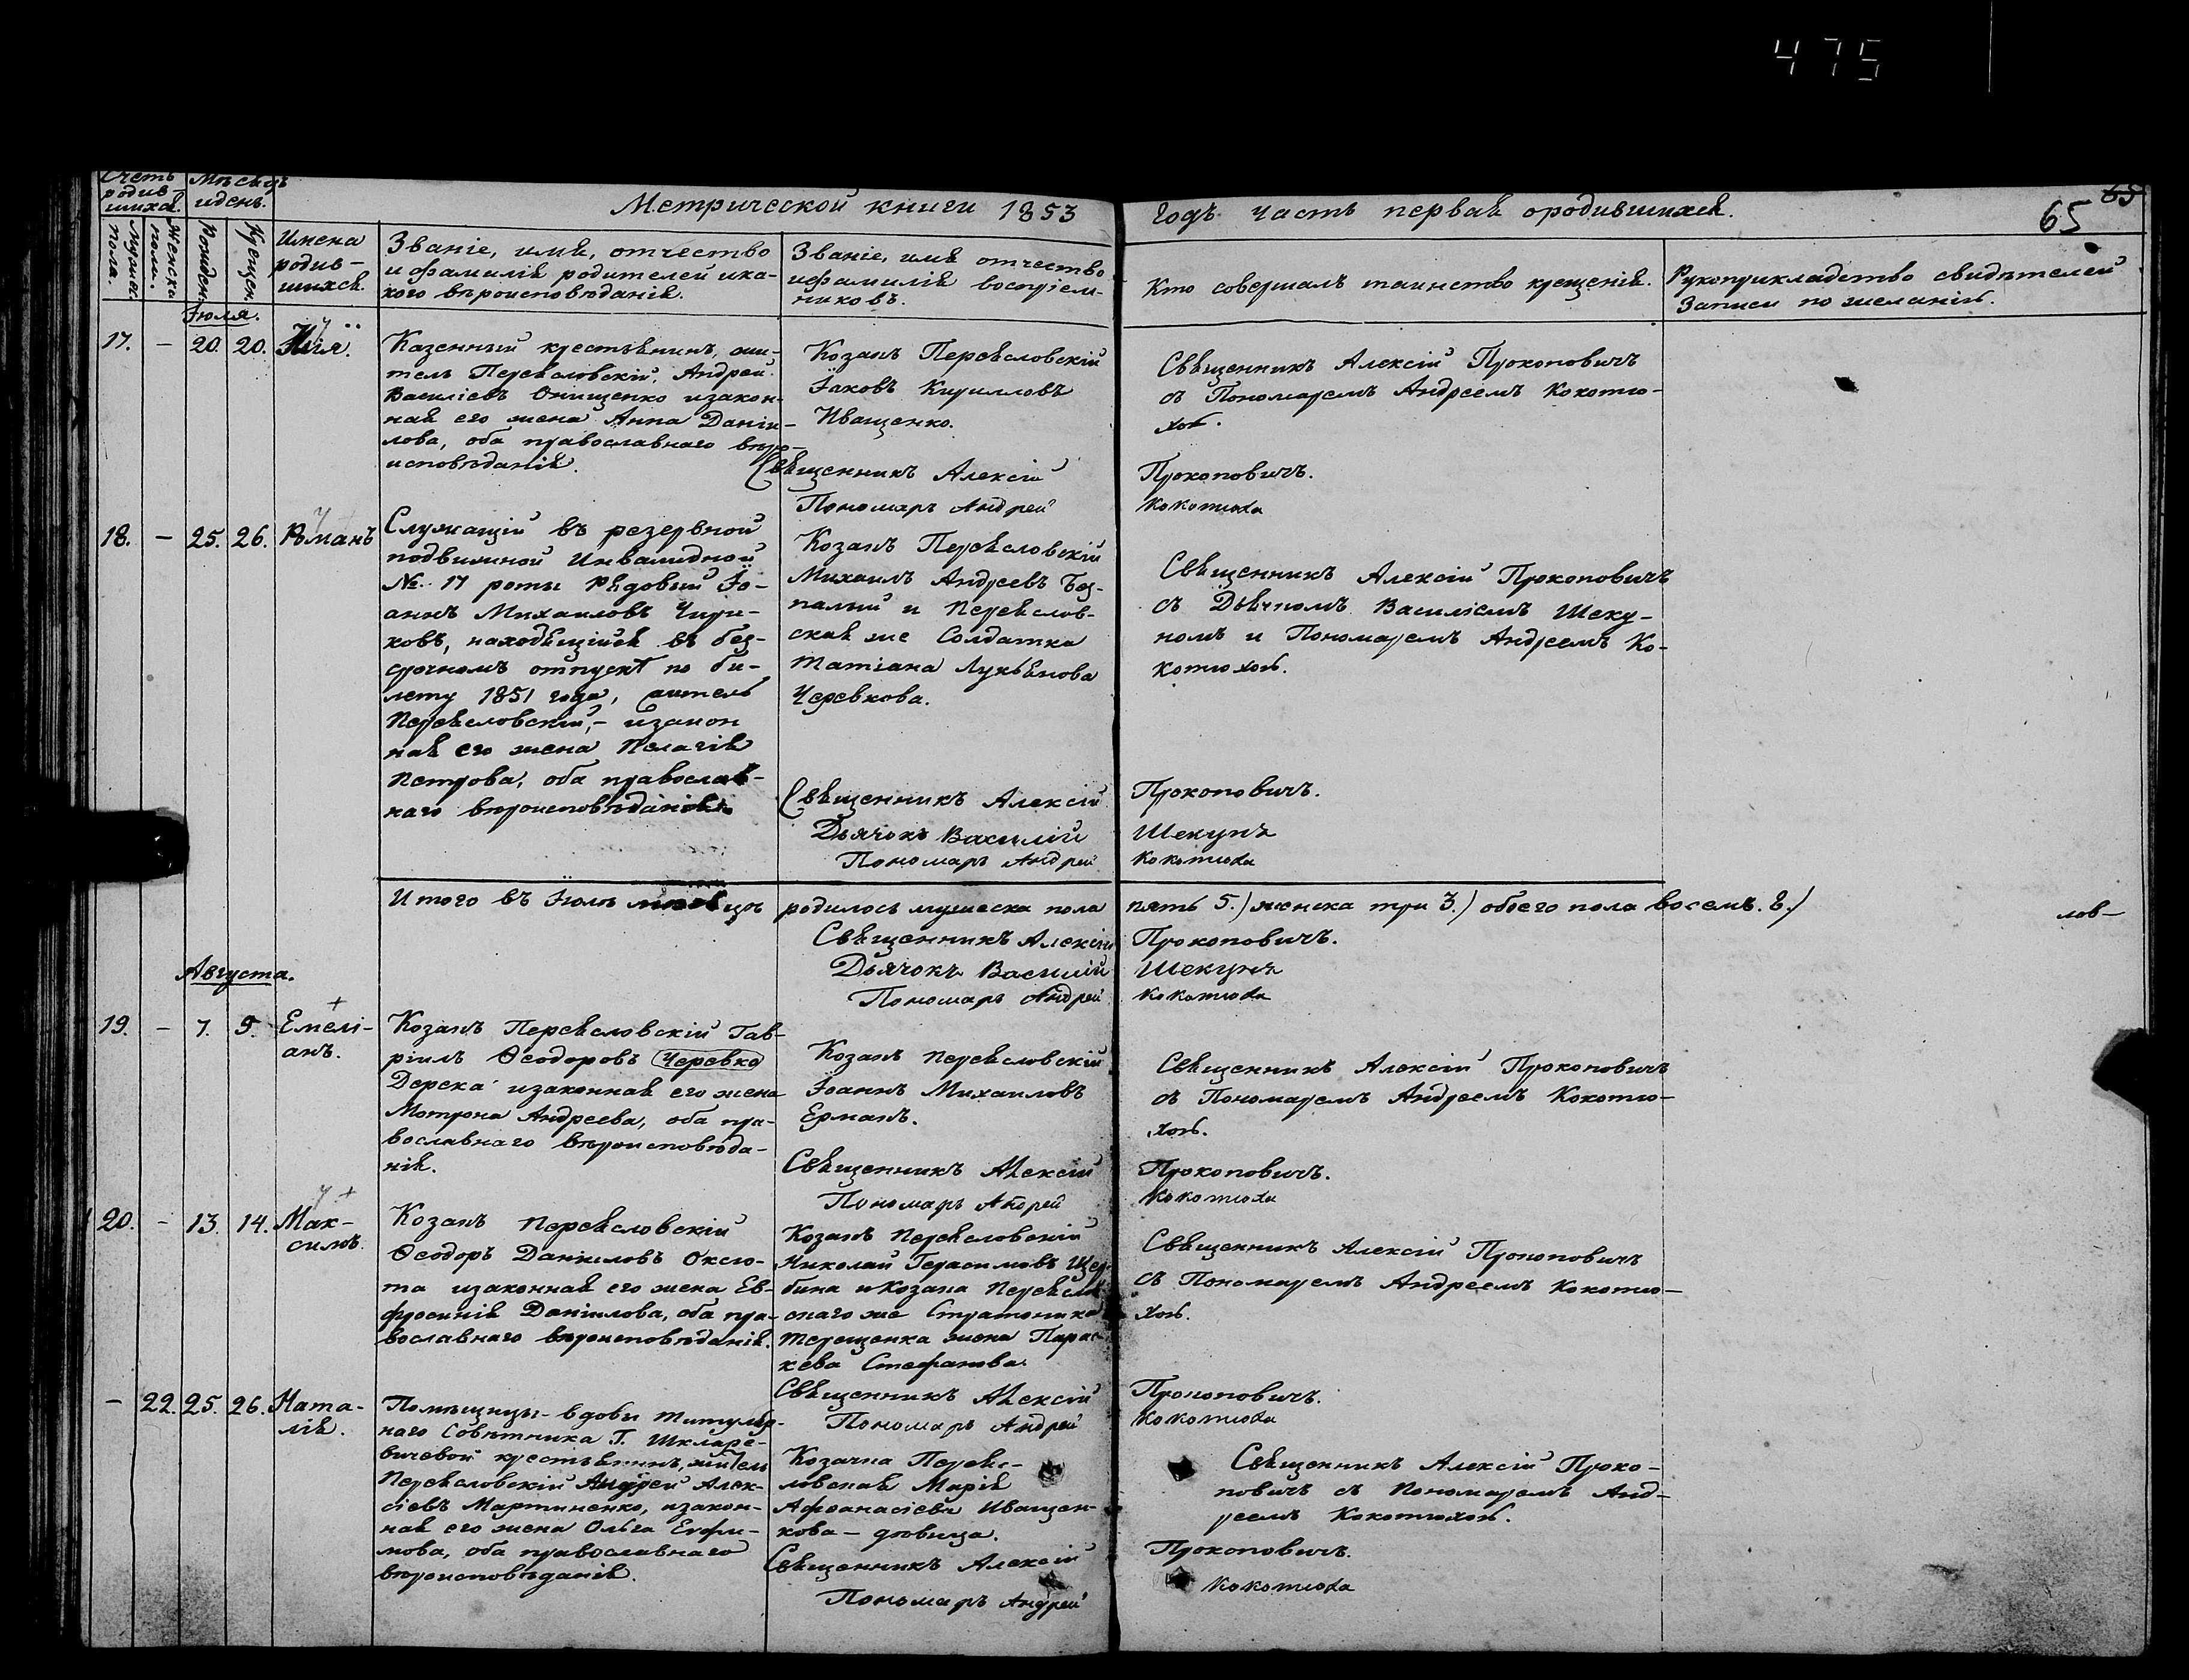 475
Счетъ родив-шихся.
Мѣсяцъ и день.
Метрической книги 1853 годъ часть первая о родившихся.
65
65
Мужеск. пола.
Женска пол.
Рожден.
Крещен.
Имена
родив-
шихся.
Званіе, имя, отчество
и фамилія родителей и ка-
кого вѣроисповѣданія.
Званіе, имя отчество
и фамилія воспріем-
никовъ.
Кто совершалъ таинство крещенія.
Рукоприкладство свидѣтелей
Записи по желанію.
Іюля.
17. – 20. 20. Илія.
Казенный крестьянинъ, жи-
тель Переясловскій, Андрей
Василіевъ Онищенко и закон-
ная его жена Анна Даніи-
лова, оба православнаго вѣро-
исповѣданія.
Козакъ Переясловскій
Іаковъ Кирилловъ
Иващенко.
Священникъ Алексій Прокоповичъ
съ Пономаремъ Андреемъ Кокотю-
хою.
Священникъ Алексій Прокоповичъ.
Пономарь Андрей Кокотюха
18. – 25. 26. Романъ
Служащій въ резервной
подвижной Инвалидной
№. 17 роты Рядовый Іо-
аннъ Михаиловъ Чири-
ковъ, находящійся въ без-
срочномъ отпускѣ по би-
лету 1851 года, житель
Переясловскій, – и закон
ная его жена Пелагія
Петрова, оба православ-
наго вѣроисповѣданія
Козакъ Переясловскій
Михаилъ Андреевъ Без-
палый и Переяслов-
ская же Солдатка
Татіана Лукьянова
Черевкова.
Священникъ Алексій Прокоповичъ
съ Дьячкомъ Василіемъ Шеку-
номъ и Пономаремъ Андреемъ Ко-
котюхою.
Священникъ Алексій Прокоповичъ.
Дьячокъ Василій Шекунъ
Пономарь Андрей Кокотюха
Итого въ Іюлѣ мѣсяцѣ родилось мужеска пола пять 5.) женска три 3.) обоего пола восемь. 8.)
лов–
Священникъ Алексій Прокоповичъ.
Дьячокъ Василій Шекунъ
Пономарь Андрей Кокотюха
Августа.
19. – 7. 9. Емелі-
анъ.
Козакъ Переясловскій Гав-
ріилъ Ѳеодоровъ Черевко
Дерека и законная его жена
Мотрона Андреева, оба пра-
вославнаго вѣроисповѣда-
нія.
Козакъ Переясловскій
Іоаннъ Михаиловъ
Ермакъ.
Священникъ Алексій Прокоповичъ
съ Пономаремъ Андреемъ Кокотю-
хою.
Священникъ Алексій Прокоповичъ.
Пономарь Андрей Кокотюха
20. – 13. 14. Мак-
симъ.
Козакъ Переясловскій
Ѳеодоръ Даніиловъ Оксю-
та и законная его жена Ев-
фросинія Даніилова, оба пра-
вославнаго вѣроисповѣданія.
Козакъ Переясловскій
Николай Герасимовъ Щер-
бина и Козака Переяслов-
скаго же Стратоника
Терещенка жена Парас-
кева Стефанова.
Священникъ Алексій Прокоповичъ
съ Пономаремъ Андреемъ Кокотю-
хою.
Священникъ Алексій Прокоповичъ.
Пономарь Андрей Кокотюха
– 22. 25. 26. Ната-
лія.
Помѣщицы – вдовы титуляр-
наго Совѣтника Г. Шкляре-
вичевой крестьянинъ, житель
Переясловскій Андрей Алек-
сіевъ Мартиненко, и закон-
ная его жена Ольга Евфи-
мова, оба православнаго
вѣроисповѣданія.
Козачка Переяс-
ловская Марія
Афанасіева Иващен-
кова – дѣвица.
Священникъ Алексій Проко-
повичъ съ Пономаремъ Анд-
реемъ Кокотюхою.
Священникъ Алексій Прокоповичъ.
Пономарь Андрей Кокотюха